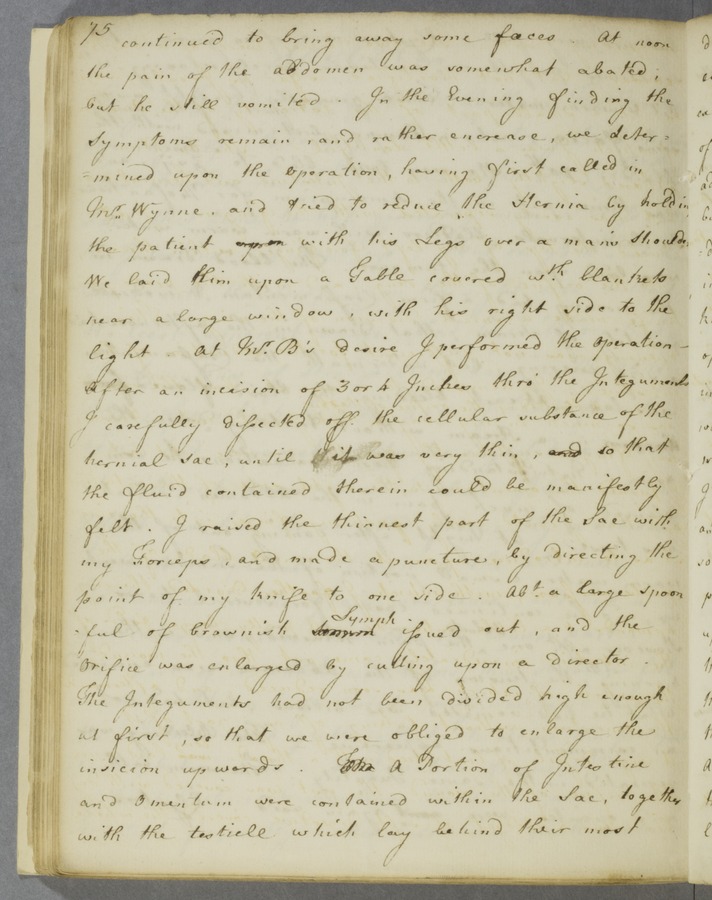 75
continued to bring away some fæces. At noon
the pain of the abdomen was somewhat abated;
but he still vomited. In the Evening finding the
symptoms remain and rather encrease, we deter=
=mined upon the operation, having first called in
Mr. Wynne. and tried to reduce the Hernia by holdin
the patient upon with his Legs over a mans Shoulde
We laid him upon a Table covered wth blankets
near a large window, with his right side to the
light. At Mr. B's desire I performed the operation–
After an incision of 3 or 4 Inches thro' the Integuments
I carefully dissected off the cellular substance of the
hernial sac, until it was very thin, and so that
the fluid contained therein could be manifestly
felt. I raised the thinnest part of the Sac with
my Forceps, and made a puncture, by directing the
point of my knife to one side. Abt. a large spoon
-ful of brownish Lymph issued out, and the
orifice was enlarged by cutting upon a director.
The Integuments had not been divided high enough
at first, so that we were obliged to enlarge the
insicion upwards. A Portion of Intestine
and Omentum were contained within the Sac, together
with the testicle which lay behind their most